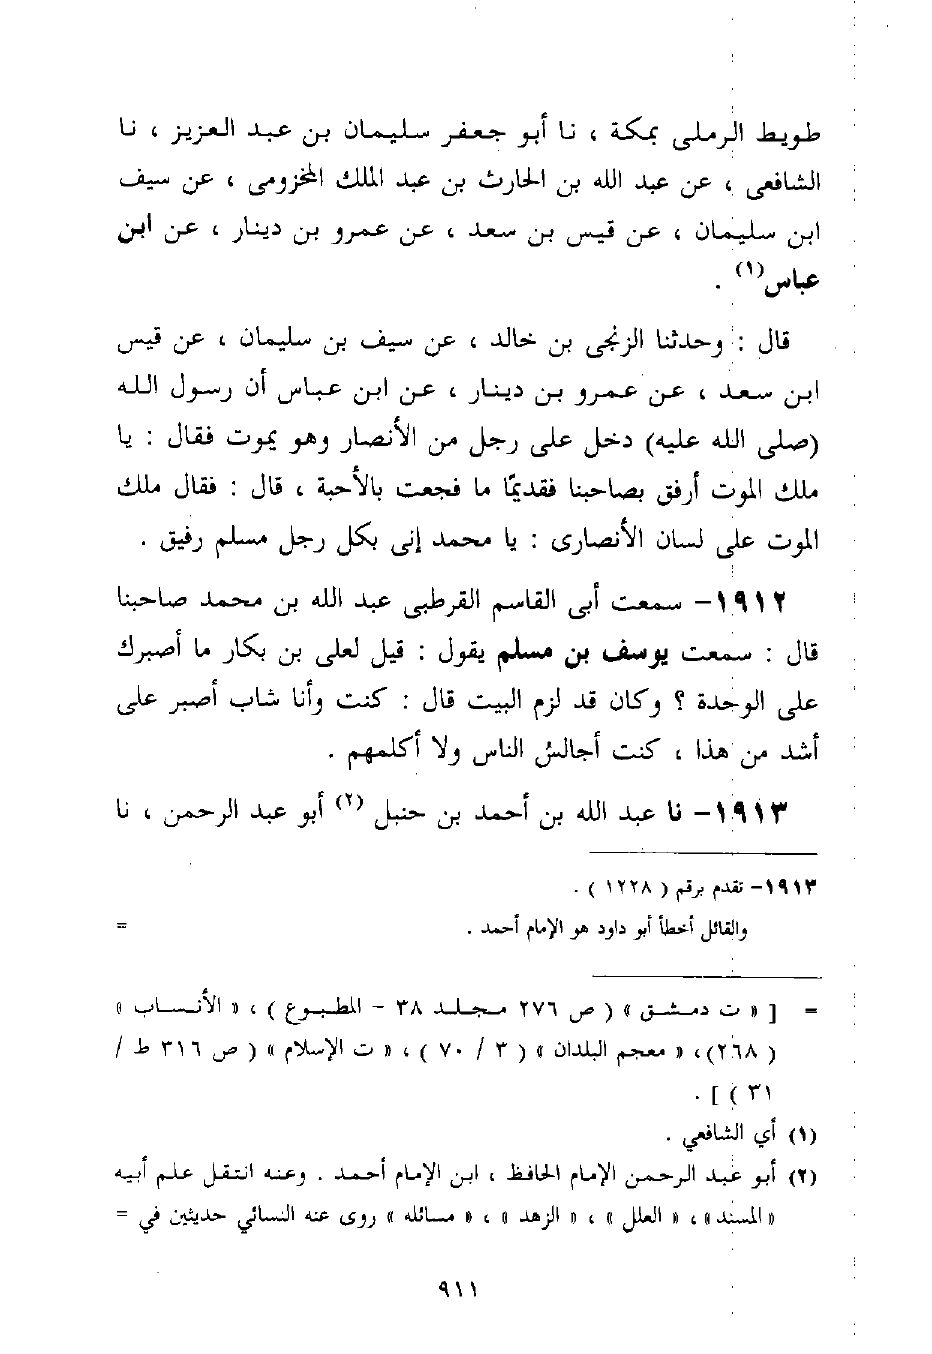 طويط الرملى بمكة ، نا أبو جعفر سليمان بن عبد العزيز ، نا
الشافعى ، عن عبد الله بن الحارث بن عبد الملك المخزومى ، عن سيف
ابن سليمان ، عن قيس بن سعد ، عن عمرو بن دينار ، عن ابن
عباس(١) .
قال : وحدثنا الزنجى بن خالد ، عن سيف بن سليمان ، عن قيس
ابن سعد ، عن عمرو بن دينار ، عن ابن عباس أن رسول الله
(صلى الله عليه) دخل على رجل من الأنصار وهو يموت فقال : يا
ملك الموت أرفق بصاحبنا فقديمًا ما فجعت بالأحبة ، قال : فقال ملك
الموت على لسان الأنصارى : يا محمد إنى بكل رجل مسلم رفيق .
١٩١٢- سمعت أبى القاسم القرطبى عبد الله بن محمد صاحبنا
قال : سمعت يوسف بن مسلم يقول : قيل لعلى بن بكار ما أصبرك
على الوحدة ؟ وكان قد لزم البيت قال : كنت وأنا شاب أصبر على
أشد من هذا ، كنت أجالس الناس ولا أكلمهم .
١٩١٣- نا عبد الله بن أحمد بن حنبل (٢) أبو عبد الرحمن ، نا
١٩١٣- تقدم برقم ( ١٢٢٨ ) .
والقائل أخطأ أبو داود هو الإمام أحمد . =
= [ « ت دمشق » ( ص ٢٧٦ مجلد ٣٨ - المطبوع ) ، « الأنساب »
( ٢٦٨) ، « معجم البلدان » ( ٣ / ٧٠ ) ، « ت الإسلام » ( ص ٣١٦ ط /
٣١ ) ] .
(١) أي الشافعي .
(٢) أبو عبد الرحمن الإمام الحافظ ، ابن الإمام أحمد . وعنه انتقل علم أبيه
« المسند» ، « العلل » ، « الزهد » ، « مسائله » روى عنه النسائي حديثين في =
٩١١